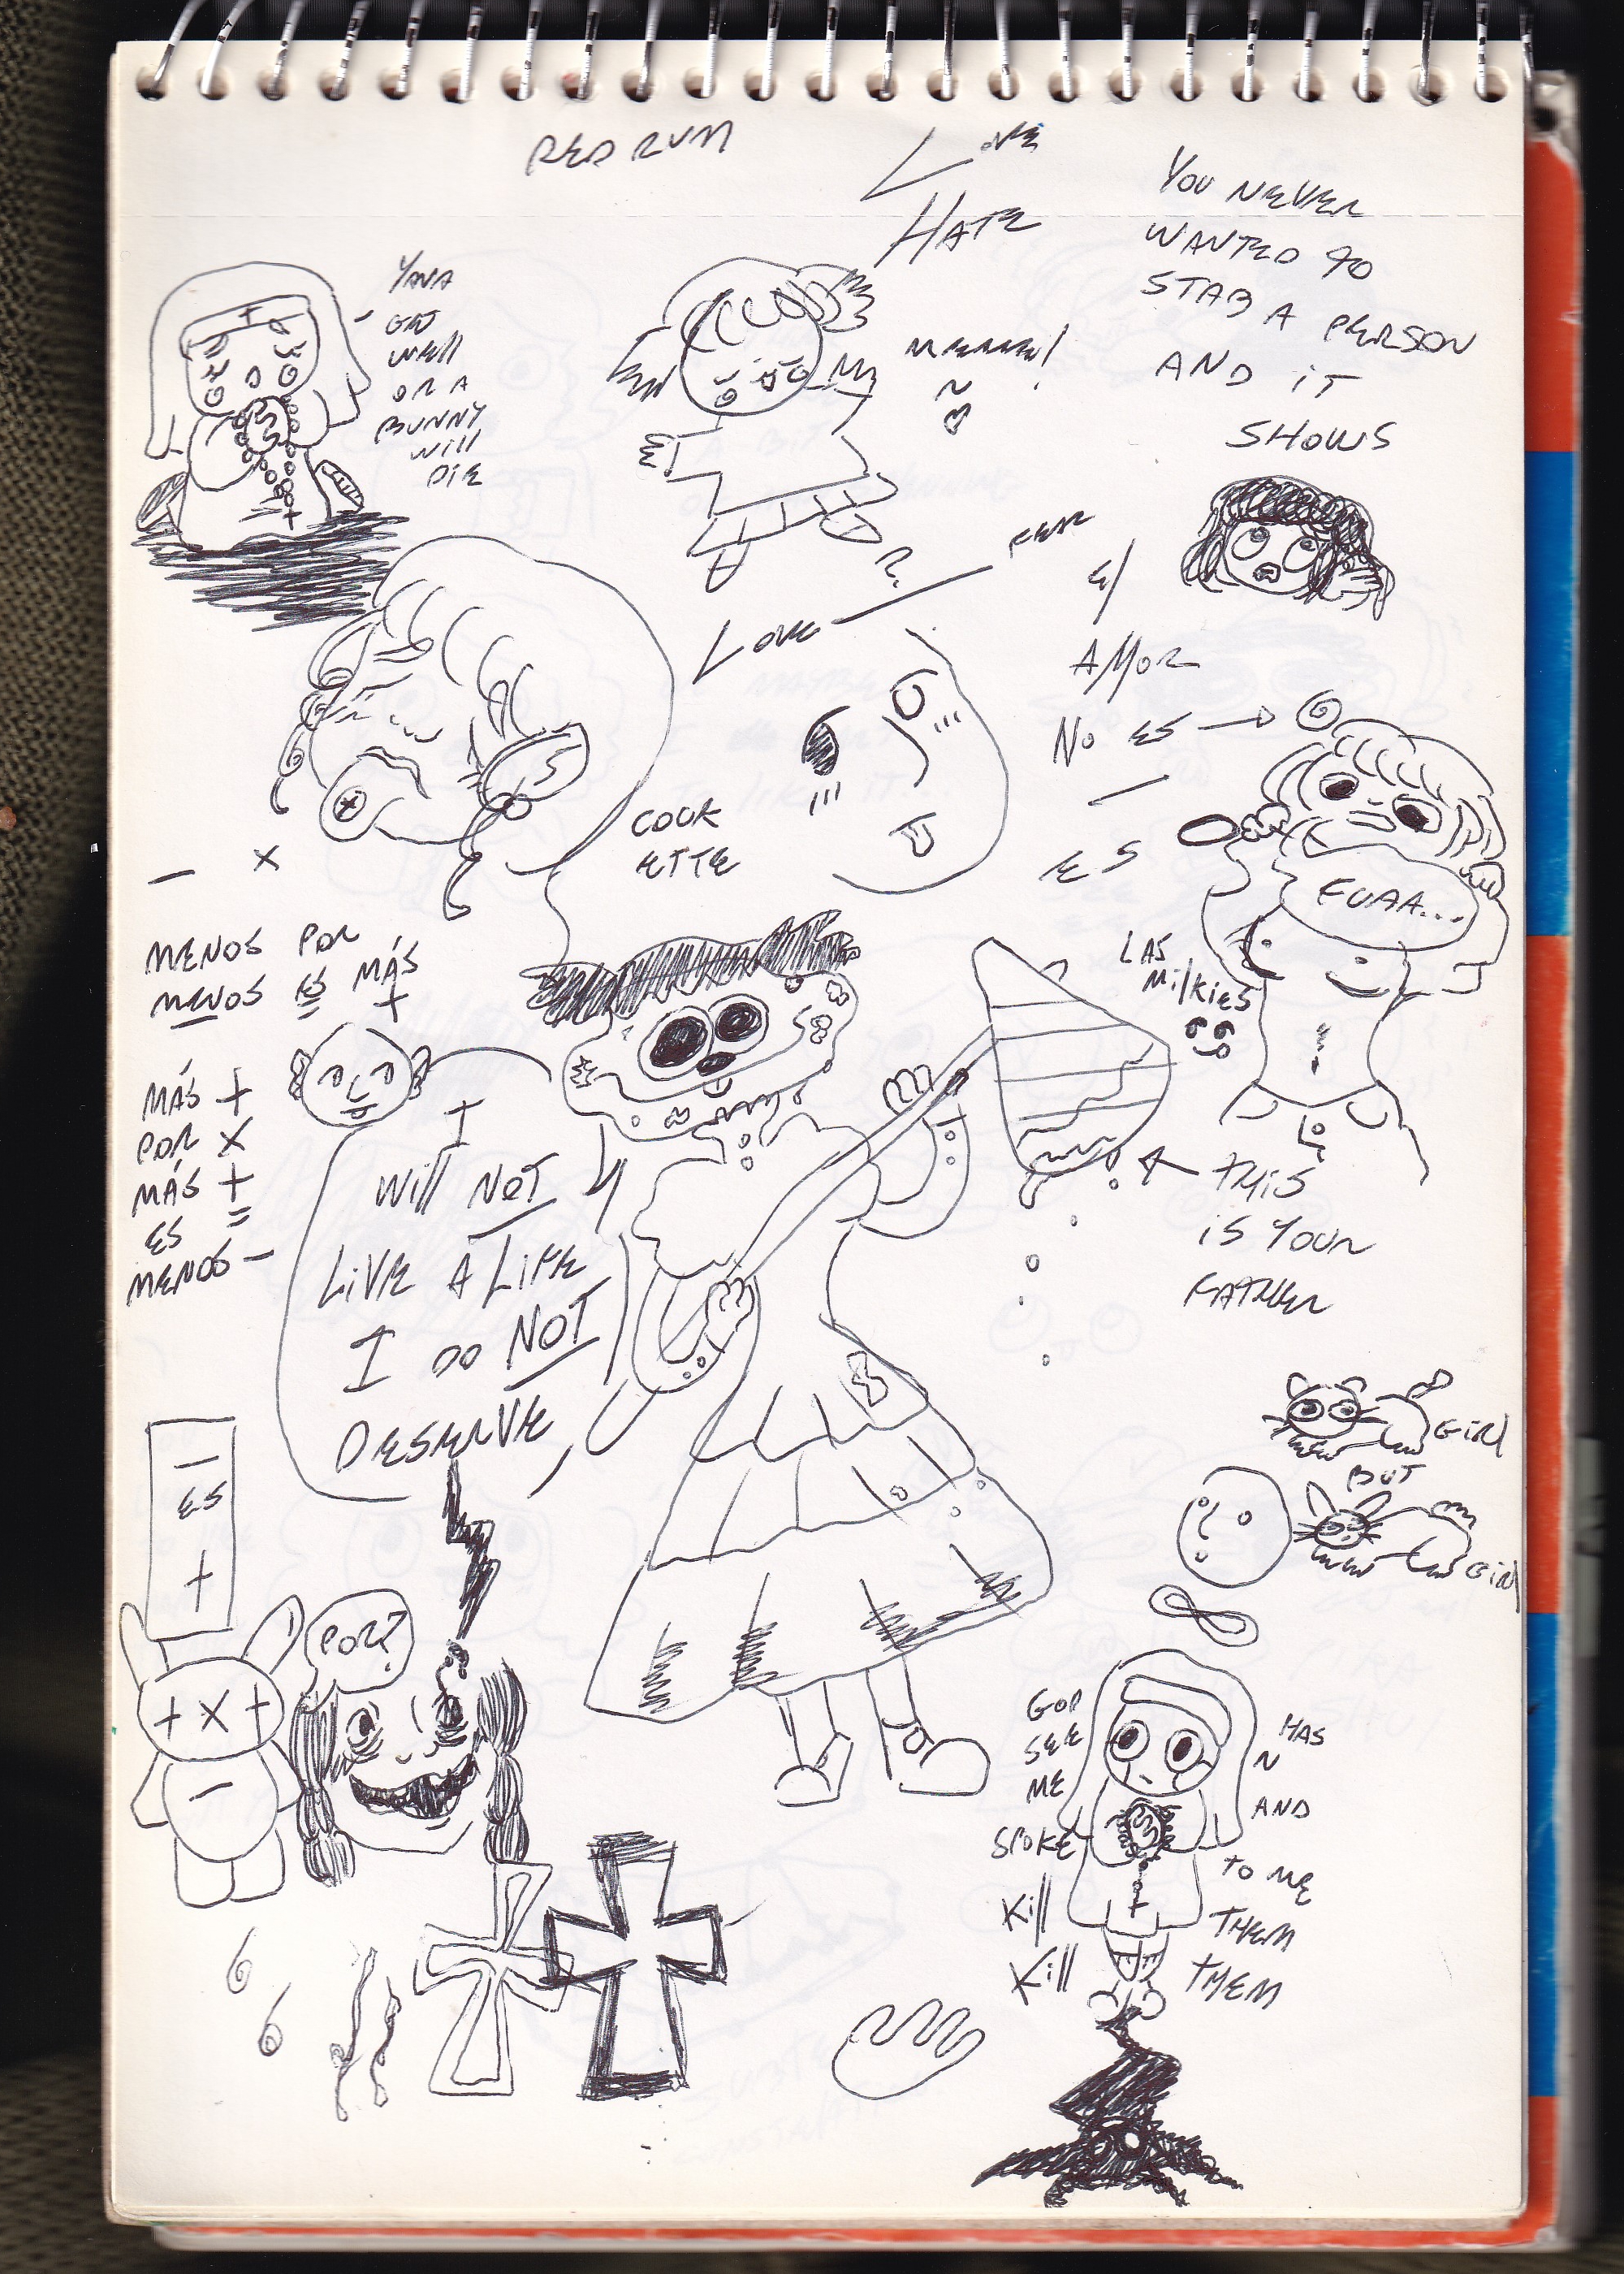 REDRUM
LOVE
HATE
YOU NEVER
WANTED TO
STAB A PERSON
AND iT
SHOWS
YANA
GET
WEll
OR A
BUNNY
Will
DiE
LOVE / FEAR
El
AMOR
NO ES →
—
ES
COCK
ETTE
EUAA...
LAS
MilkiES
— X
MENOS POR
MENOS ES MÁS
= +
MÁS +
POR X
MÁS +
ES =
MENOS —
I
Will NOT
LiVE A LiFE
I DO NOT
DESERVE
THiS
iS YOUR
FATHER
GiRl
BUT
GiRl
—
ES
+
POR?
+ X +
—
GOD HAS
SEE N
ME AND
SPOKE TO ME
Kill THEM
Kill THEM
6
6